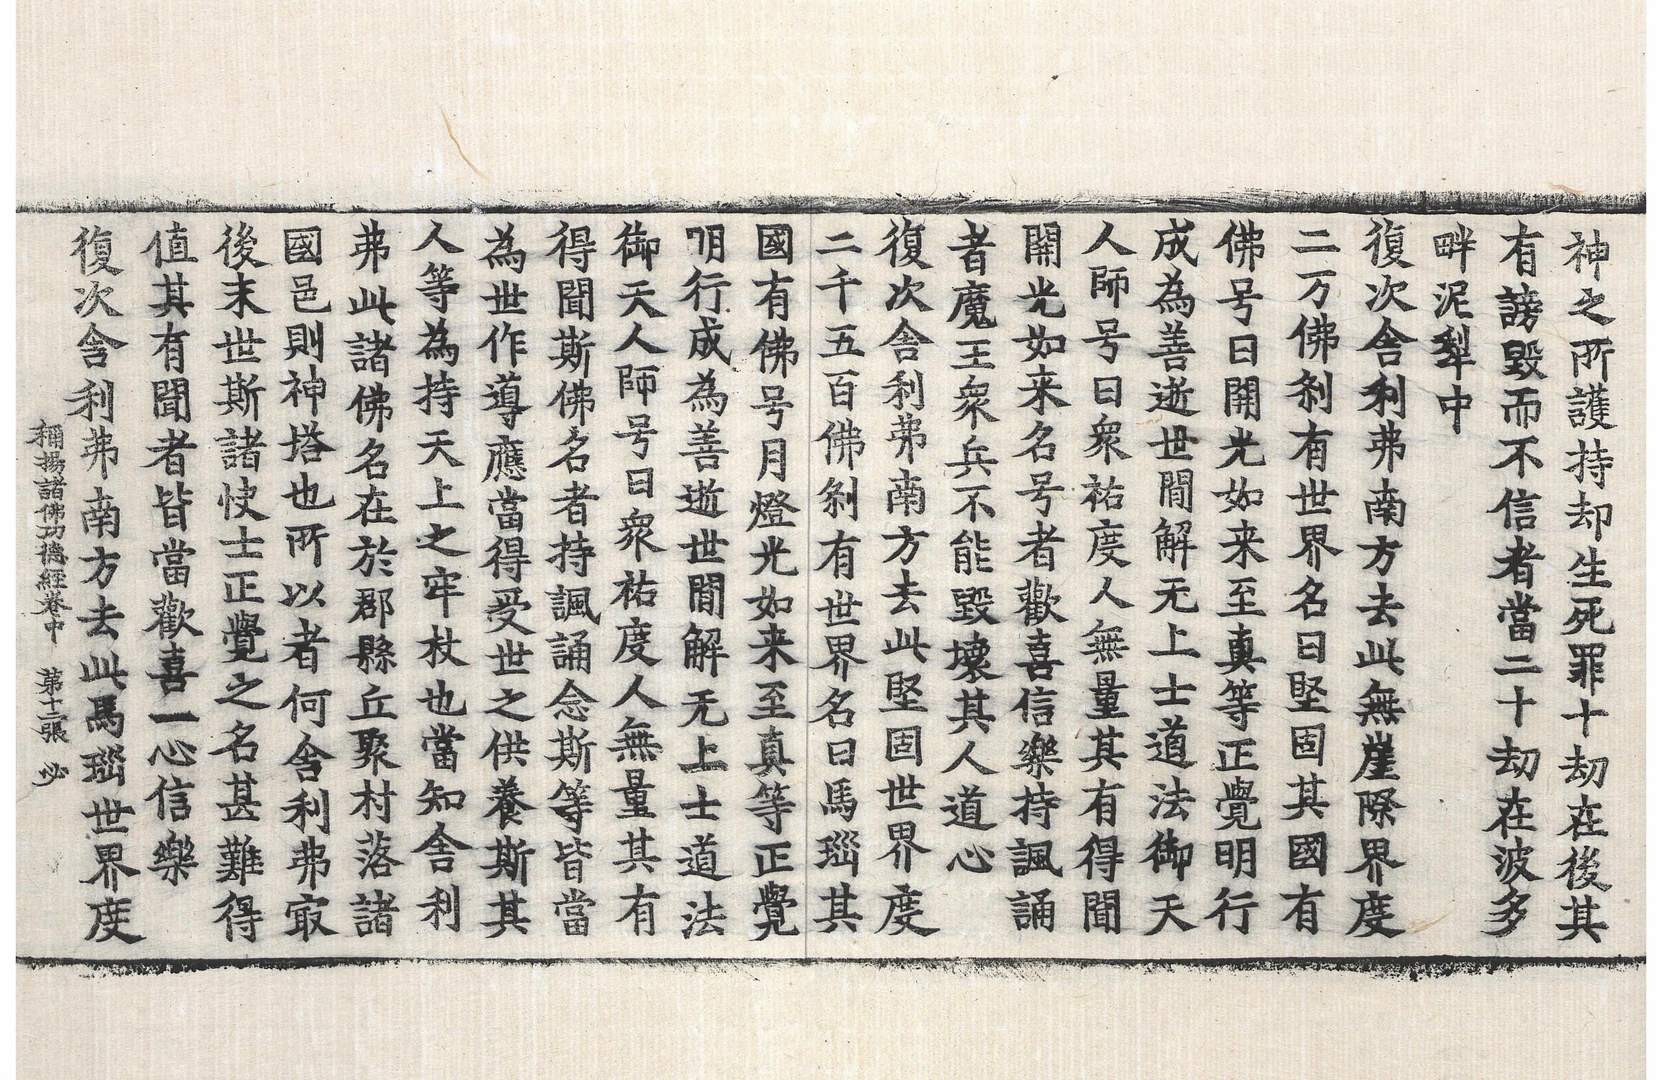 神之所護持却生死罪十劫在後其
有謗毀而不信者當二十劫在波多
畔泥犁中
復次舍利弗南方去此無崖際界度
二万佛刹有世界名曰堅固其國有
佛号曰開光如来至真等正覺明行
成為善逝世間解无上士道法御天
人師号曰衆祐度人無量其有得聞
開光如来名号者歡喜信樂持諷誦
者魔王衆兵不能毀壞其人道心
復次舍利弗南方去此堅固世界度
二千五百佛刹有世界名曰馬瑙其
國有佛号月燈光如来至真等正覺
明行成為善逝世間解无上士道法
御天人師号曰衆祐度人無量其有
得聞斯佛名者持諷誦念斯等皆當
為世作導應當得受世之供養斯其
人等為持天上之牢杖也當知舍利
弗此諸佛名在於郡縣丘聚村落諸
國邑則神塔也所以者何舍利弗㝡
後末世斯諸快士正覺之名甚難得
值其有聞者皆當歡喜一心信樂
復次舍利弗南方去此馬瑙世界度
稱揚諸佛功德經卷中　第十二張　必